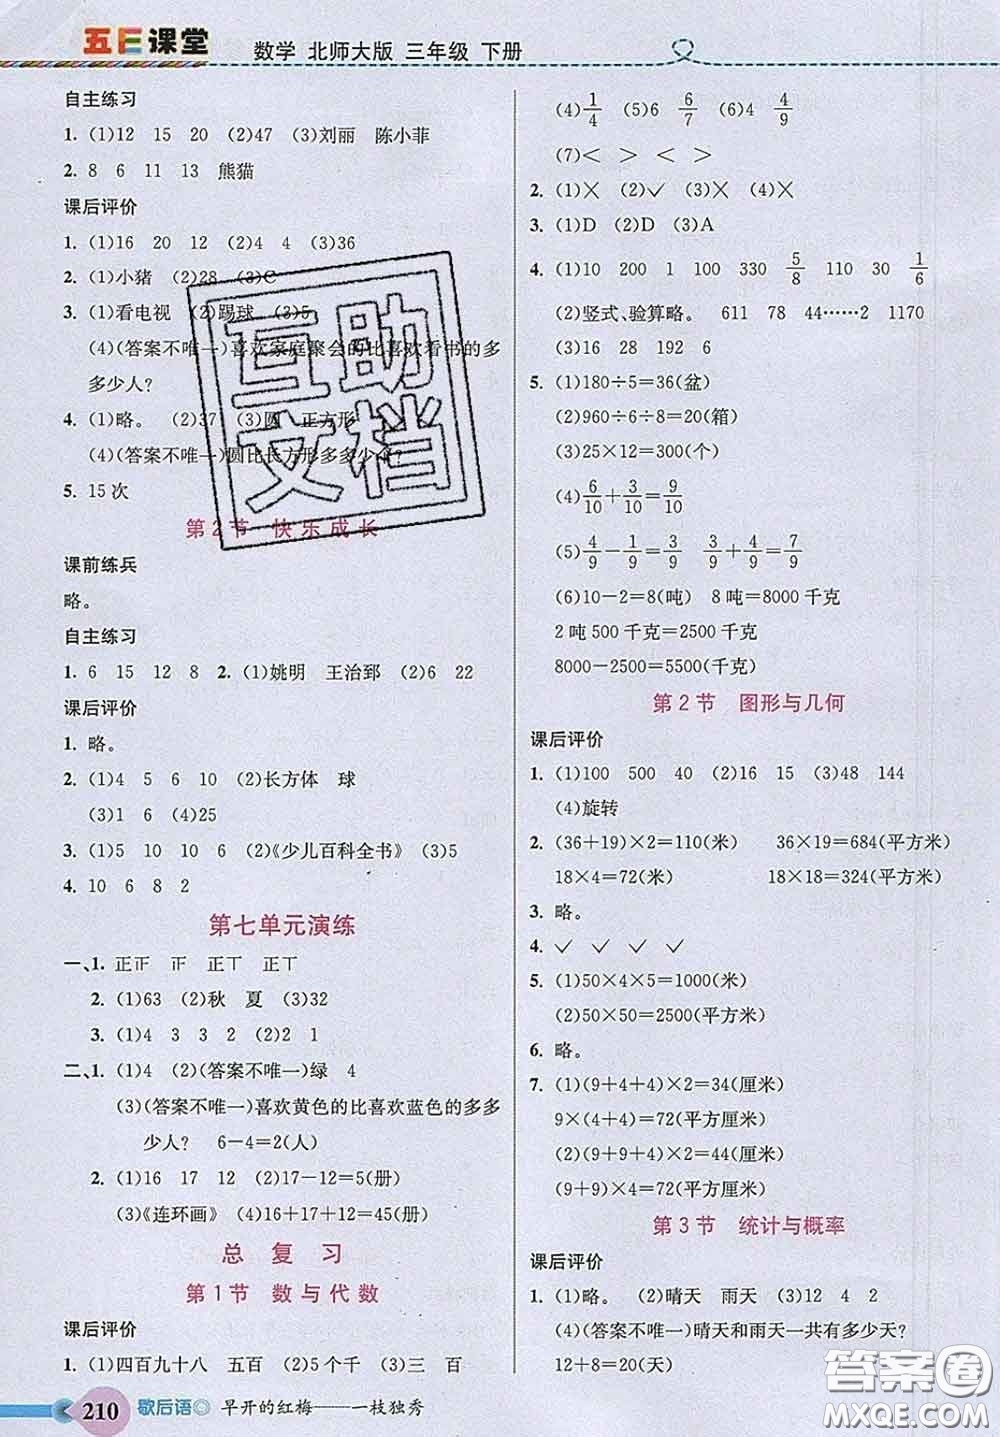 五E课堂 数学 北师大版 三年级 下册
自主练习
1. (1)12 15 20 (2)47 (3)刘丽 陈小菲
2. 8 6 11 13 熊猫
课后评价
1. (1)16 20 12 (2)4 4 (3)36
2. (1)小猪 (2)28 (3)C
3. (1)看电视 (2)踢球 (3)5
(4)(答案不唯一)喜欢家庭聚会的比喜欢看书的多
多少人?
4. (1)略。 (2)37 (3)圆 正方形
(4)(答案不唯一)圆比长方形多多少个?
5. 15次
第2节 快乐成长
课前练兵
略。
自主练习
1. 6 15 12 8 2. (1)姚明 王治郅 (2)6 22
课后评价
1. 略。
2. (1)4 5 6 10 (2)长方体 球
(3)1 6 (4)25
3. (1)5 10 10 6 (2)《少儿百科全书》 (3)5
4. 10 6 8 2
第七单元演练
一、1. 正正 正 正丅 正丅
2. (1)63 (2)秋 夏 (3)32
3. (1)4 3 3 2 (2)2 1
二、1. (1)4 (2)(答案不唯一)绿 4
(3)(答案不唯一)喜欢黄色的比喜欢蓝色的多多
少人? 6-4=2(人)
2. (1)16 17 12 (2)17-12=5(册)
(3)《连环画》 (4)16+17+12=45(册)
总复习
第1节 数与代数
课后评价
1. (1)四百九十八 五百 (2)5个千 (3)三 百
(4)1/4 (5)6 6/7 (6)4 4/9
(7)< > < >
2. (1)✕ (2)✓ (3)✕ (4)✕
3. (1)D (2)D (3)A
4. (1)10 200 1 100 330 5/8 110 30 1/6
(2)竖式、验算略。 611 78 44……2 1170
(3)16 28 192 6
5. (1)180÷5=36(盆)
(2)960÷6÷8=20(箱)
(3)25×12=300(个)
(4)6/10+3/10=9/10
(5)4/9-1/9=3/9 3/9+4/9=7/9
(6)10-2=8(吨) 8吨=8000千克
2吨500千克=2500千克
8000-2500=5500(千克)
第2节 图形与几何
课后评价
1. (1)100 500 40 (2)16 15 (3)48 144
(4)旋转
2. (36+19)×2=110(米) 36×19=684(平方米)
18×4=72(米) 18×18=324(平方米)
3. 略。
4. ✓ ✓ ✓ ✓
5. (1)50×4×5=1000(米)
(2)50×50=2500(平方米)
6. 略。
7. (1)(9+4+4)×2=34(厘米)
9×(4+4)=72(平方厘米)
(2)(9+9+4)×2=44(厘米)
(9+9)×4=72(平方厘米)
第3节 统计与概率
课后评价
1. (1)略。 (2)晴天 雨天 (3)12 4 2
(4)(答案不唯一)晴天和雨天一共有多少天?
12+8=20(天)
210 歇后语 早开的红梅——一枝独秀
互助
文档
答案圈
MXQE.COM